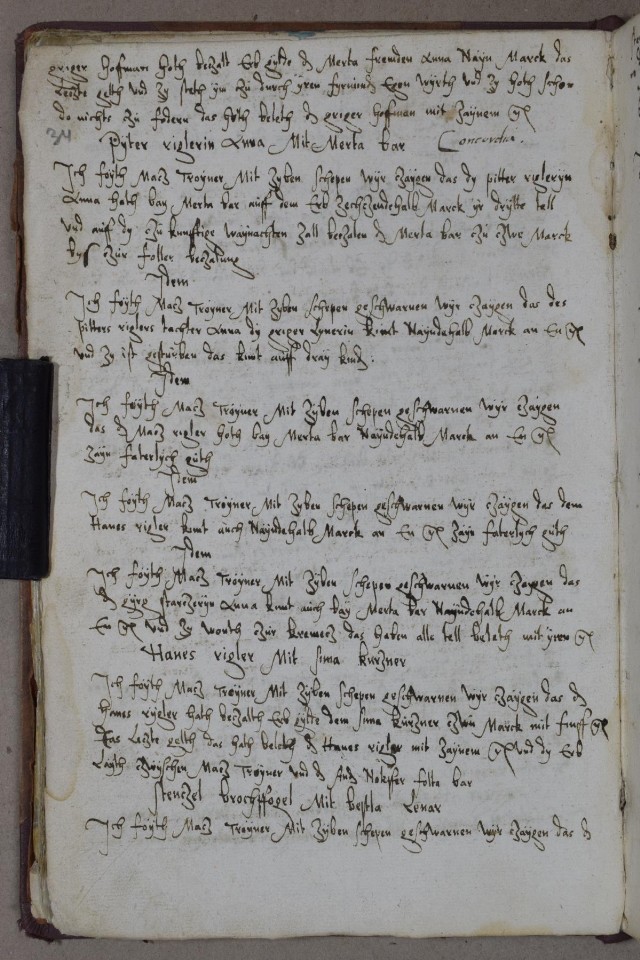 griger Hoffman Hoth beczalt Erb gytte d Merta fremden Anna Nayn Marck das
Leczte gelth vnd zy steth ym czu durch yren fyrmind Egon wyrth vnd zy hoth schon
do nichts zu fodern das hoth beleth d griger Hoffman mit zaynem g
34
Pyter riglerin Anna Mit Merta bar Concordin.
Ich foyth Macz Troyner Mit zyben schepen wyr czaygen das dy pitter rigleryn
Anna Hoth bay Merta bar auff dem Erb Zechczendehalb Marck yr drytte tell
vnd auf dy czu kunfftige waynachten zall beczalen d Merta bar czu zwe Marck
bys zur foller beczalung
Idem
Ich foyth Macz Troyner Mit zyben schepen geschwarnen wyr czaygen das des
pitters riglers tachter Anna dy griger kimt Nayndehalb Marck an En g
vnd zy ist gesturben das kimt auff dray kind.
Idem
Ich foyth Macz Troyner Mit zyben schepen geschwarnen wyr czaygen
das d Macz rigler Hoth bay Merta bar Nayndehalb Marck an En g
zayn faterlych guth
Idem
Ich foyth Macz Troyner Mit zyben schepen geschwarnen wyr czaygen das dem
Hanes rigler kimt auch Nayndehalb Marck an En g zayn faterlych guth
Idem
Ich foyth Macz Troyner Mit zyben schepen geschwarnen wyr czaygen das
d gyrg Anna kimt auch bay Merta bar Nayndehalb Marck an
En g vnd zy wonth zur kremcz das haben alle tell beleth mit yren g
Hanes rigler Mit sima kurzner
Ich foyth Macz Troyner Mit zyben schepen geschwarnen wyr czaygen das d
Hanes rygler hath beczalth Erb gytte dem sima kurzner zwu Marck mit funff g
Das Leczte gelth das hath beleth d Hanes rigler mit zaynem g vnd dy Erb
Layth zwyschen Macz Troyner vnd d folta bar
stenczel brochffogel Mit bestla Lenar
Ich foyth Macz Troyner Mit zyben schepen geschwarnen wyr czaygen das d